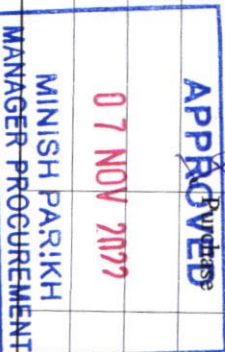 APPROVED
Purchase
07 NOV 2022
MINISH PARIKH
MANAGER PROCUREMENT